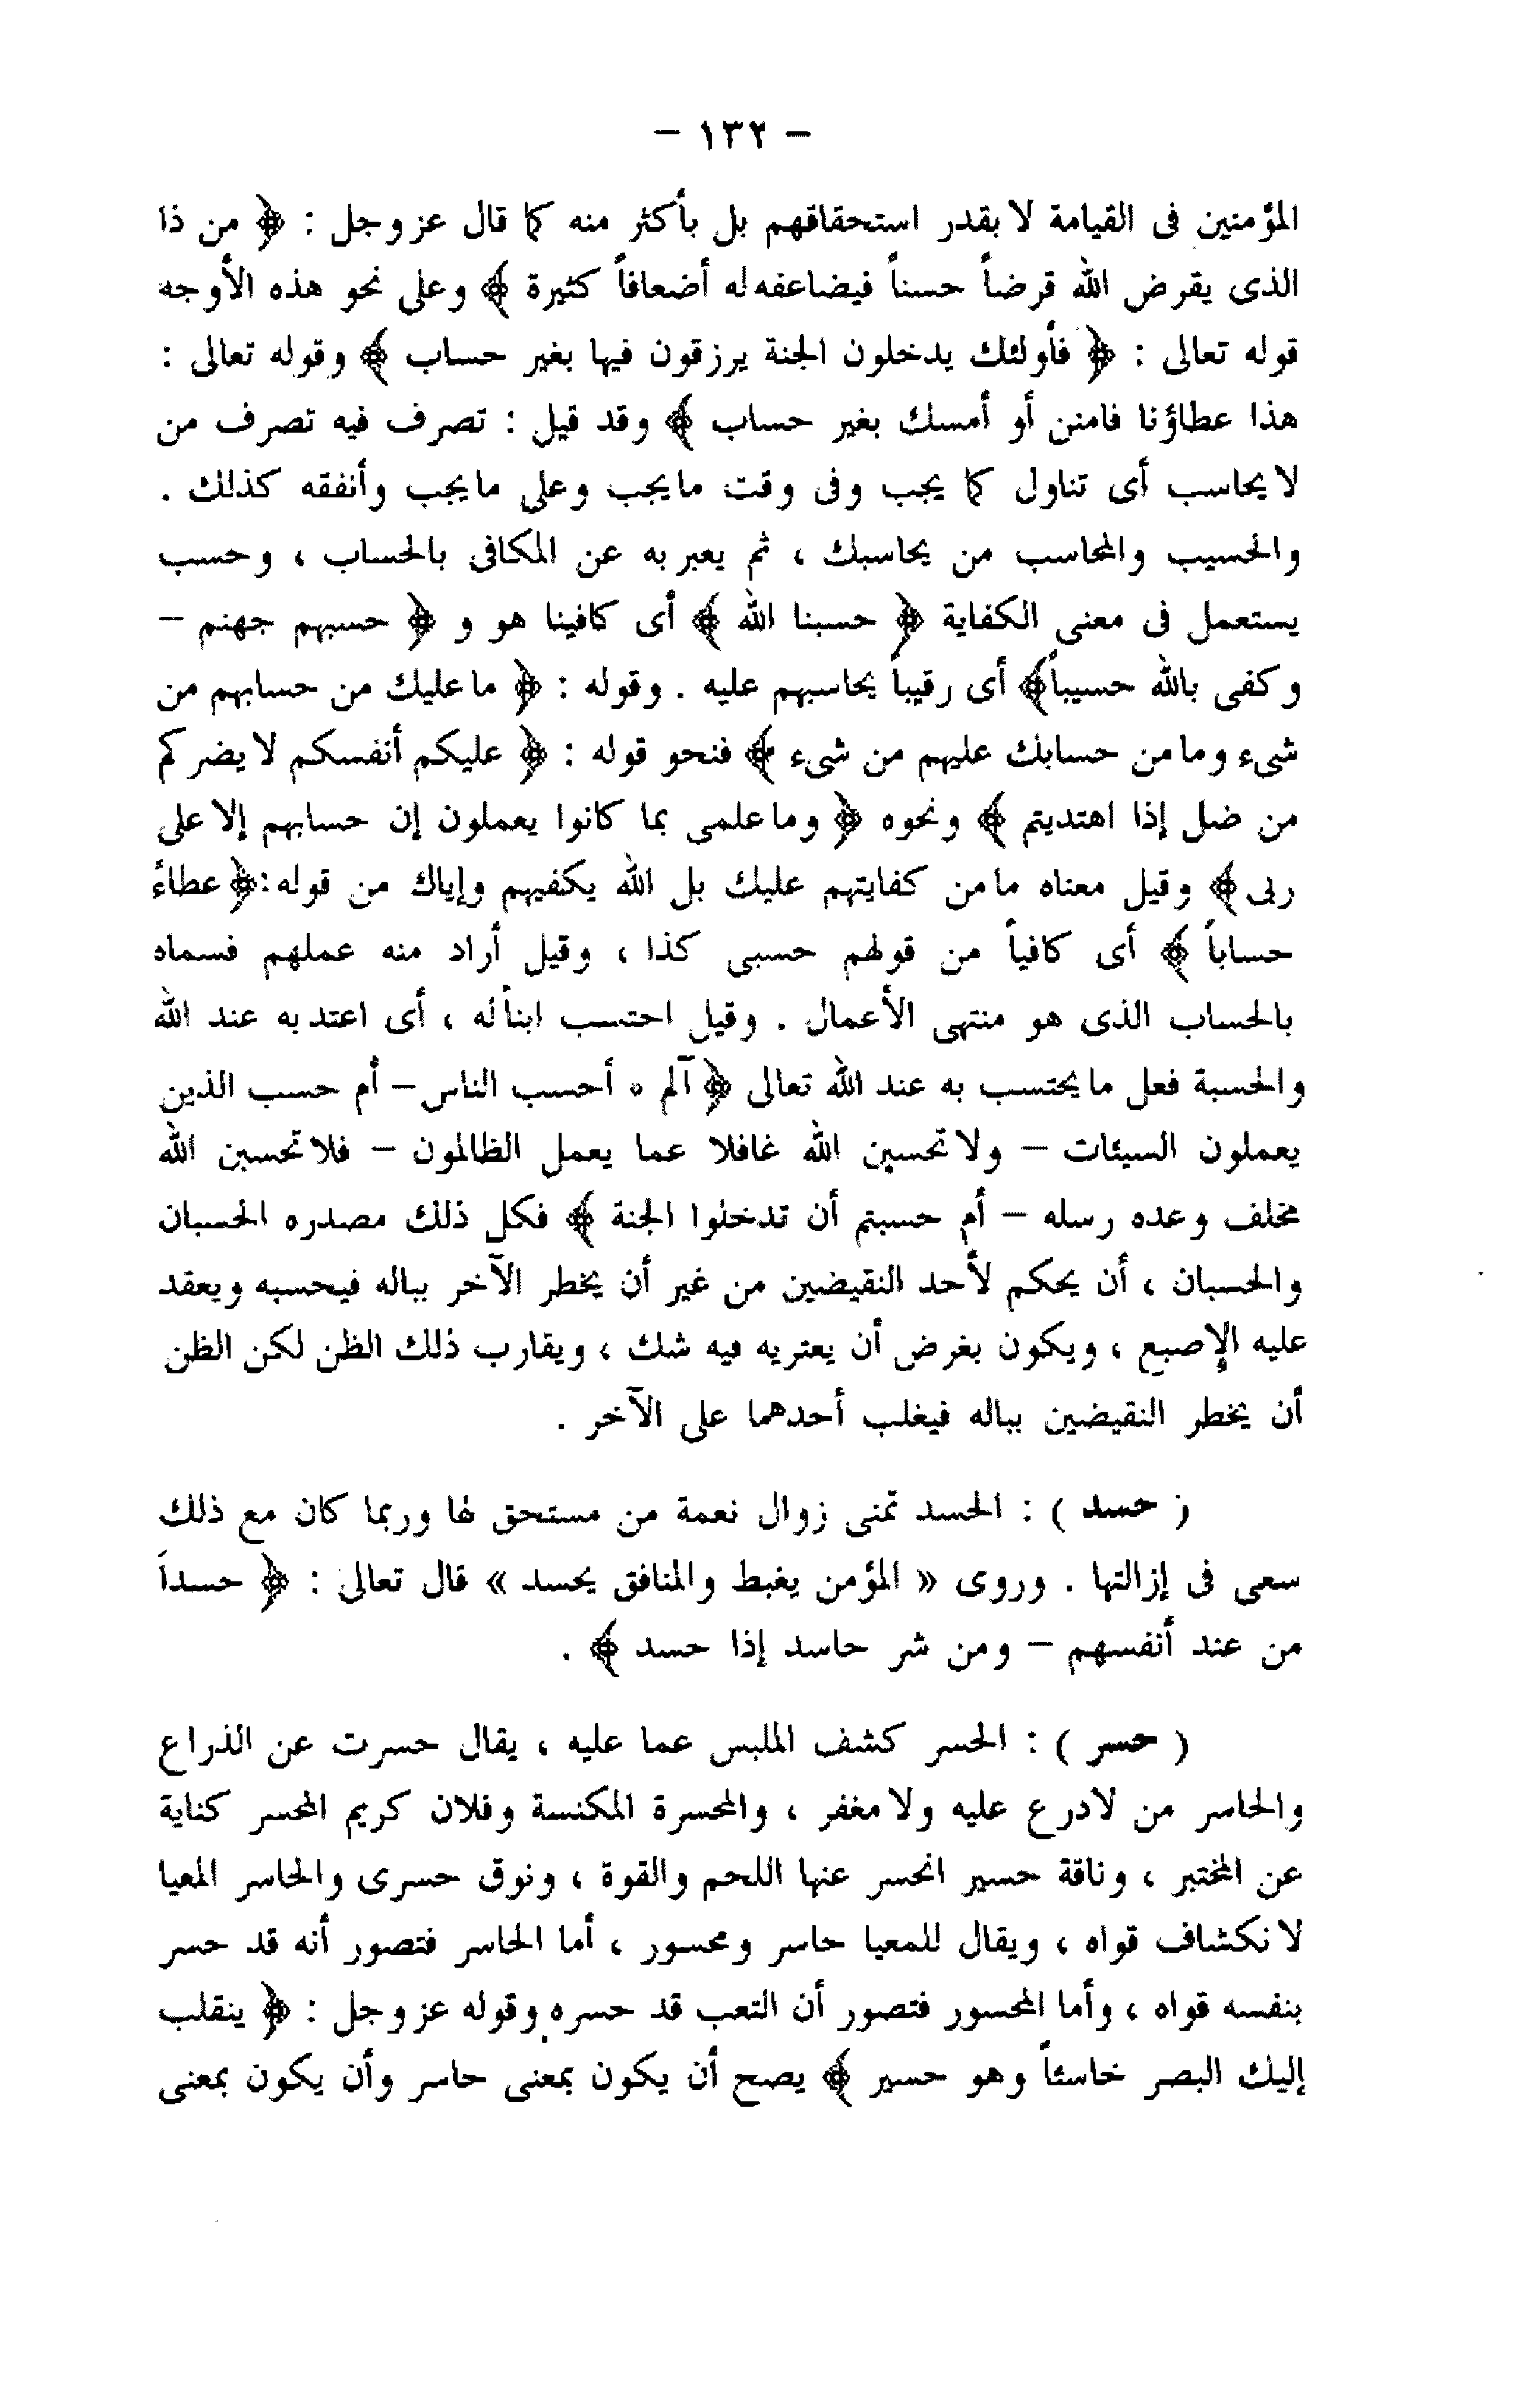 – ١٣٢ –
المؤمنين فى القيامة لا بقدر استحقاقهم بل بأكثر منه كما قال عز وجل : ﴿ من ذا
الذى يقرض الله قرضاً حسناً فيضاعفه له أضعافاً كثيرة ﴾ وعلى نحو هذه الأوجه
قوله تعالى : ﴿ فأولئك يدخلون الجنة يرزقون فيها بغير حساب ﴾ وقوله تعالى :
هذا عطاؤنا فامنن أو أمسك بغير حساب ﴾ وقد قيل : تصرف فيه تصرف من
لا يحاسب أى تناول كما يجب وفى وقت ما يجب وعلى ما يجب وأنفقه كذلك .
والحسيب والمحاسب من يحاسبك ، ثم يعبر به عن المكافى بالحساب ، وحسب
يستعمل فى معنى الكفاية ﴿ حسبنا الله ﴾ أى كافينا هو و ﴿ حسبهم جهنم –
وكفى بالله حسيباً﴾ أى رقيباً يحاسبهم عليه . وقوله : ﴿ ما عليك من حسابهم من
شىء وما من حسابك عليهم من شىء ﴾ فنحو قوله : ﴿ عليكم أنفسكم لا يضركم
من ضل إذا اهتديتم ﴾ ونحوه ﴿ وما علمى بما كانوا يعملون إن حسابهم إلا على
ربى ﴾ وقيل معناه ما من كفايتهم عليك بل الله يكفيهم وإياك من قوله:﴿عطاءً
حساباً ﴾ أى كافياً من قولهم حسبى كذا ، وقيل أراد منه عملهم فسماه
بالحساب الذى هو منتهى الأعمال . وقيل احتسب ابناً له ، أى اعتد به عند الله
والحسبة فعل ما يحتسب به عند الله تعالى ﴿ آلم ٥ أحسب الناس – أم حسب الذين
يعملون السيئات – ولا تحسبن الله غافلا عما يعمل الظالمون – فلا تحسبن الله
مخلف وعده رسله – أم حسبتم أن تدخلوا الجنة ﴾ فكل ذلك مصدره الحسبان
والحسبان ، أن يحكم لأحد النقيضين من غير أن يخطر الآخر بباله فيحسبه ويعقد
عليه الإصبع ، ويكون بغرض أن يعتريه فيه شك ، ويقارب ذلك الظن لكن الظن
أن يخطر النقيضين بباله فيغلب أحدهما على الآخر .
( حسد ) : الحسد تمنى زوال نعمة من مستحق لها وربما كان مع ذلك
سعى فى إزالتها . وروى « المؤمن يغبط والمنافق يحسد » قال تعالى : ﴿ حسداً
من عند أنفسهم – ومن شر حاسد إذا حسد ﴾ .
( حسر ) : الحسر كشف الملبس عما عليه ، يقال حسرت عن الذراع
والحاسر من لا درع عليه ولا مغفر ، والمحسرة المكنسة وفلان كريم المحسر كناية
عن المختبر ، وناقة حسير انحسر عنها اللحم والقوة ، ونوق حسرى والحاسر المعيا
لانكشاف قواه ، ويقال للمعيا حاسر ومحسور ، أما الحاسر فتصور أنه قد حسر
بنفسه قواه ، وأما المحسور فتصور أن التعب قد حسره وقوله عز وجل : ﴿ ينقلب
إليك البصر خاسئاً وهو حسير ﴾ يصح أن يكون بمعنى حاسر وأن يكون بمعنى